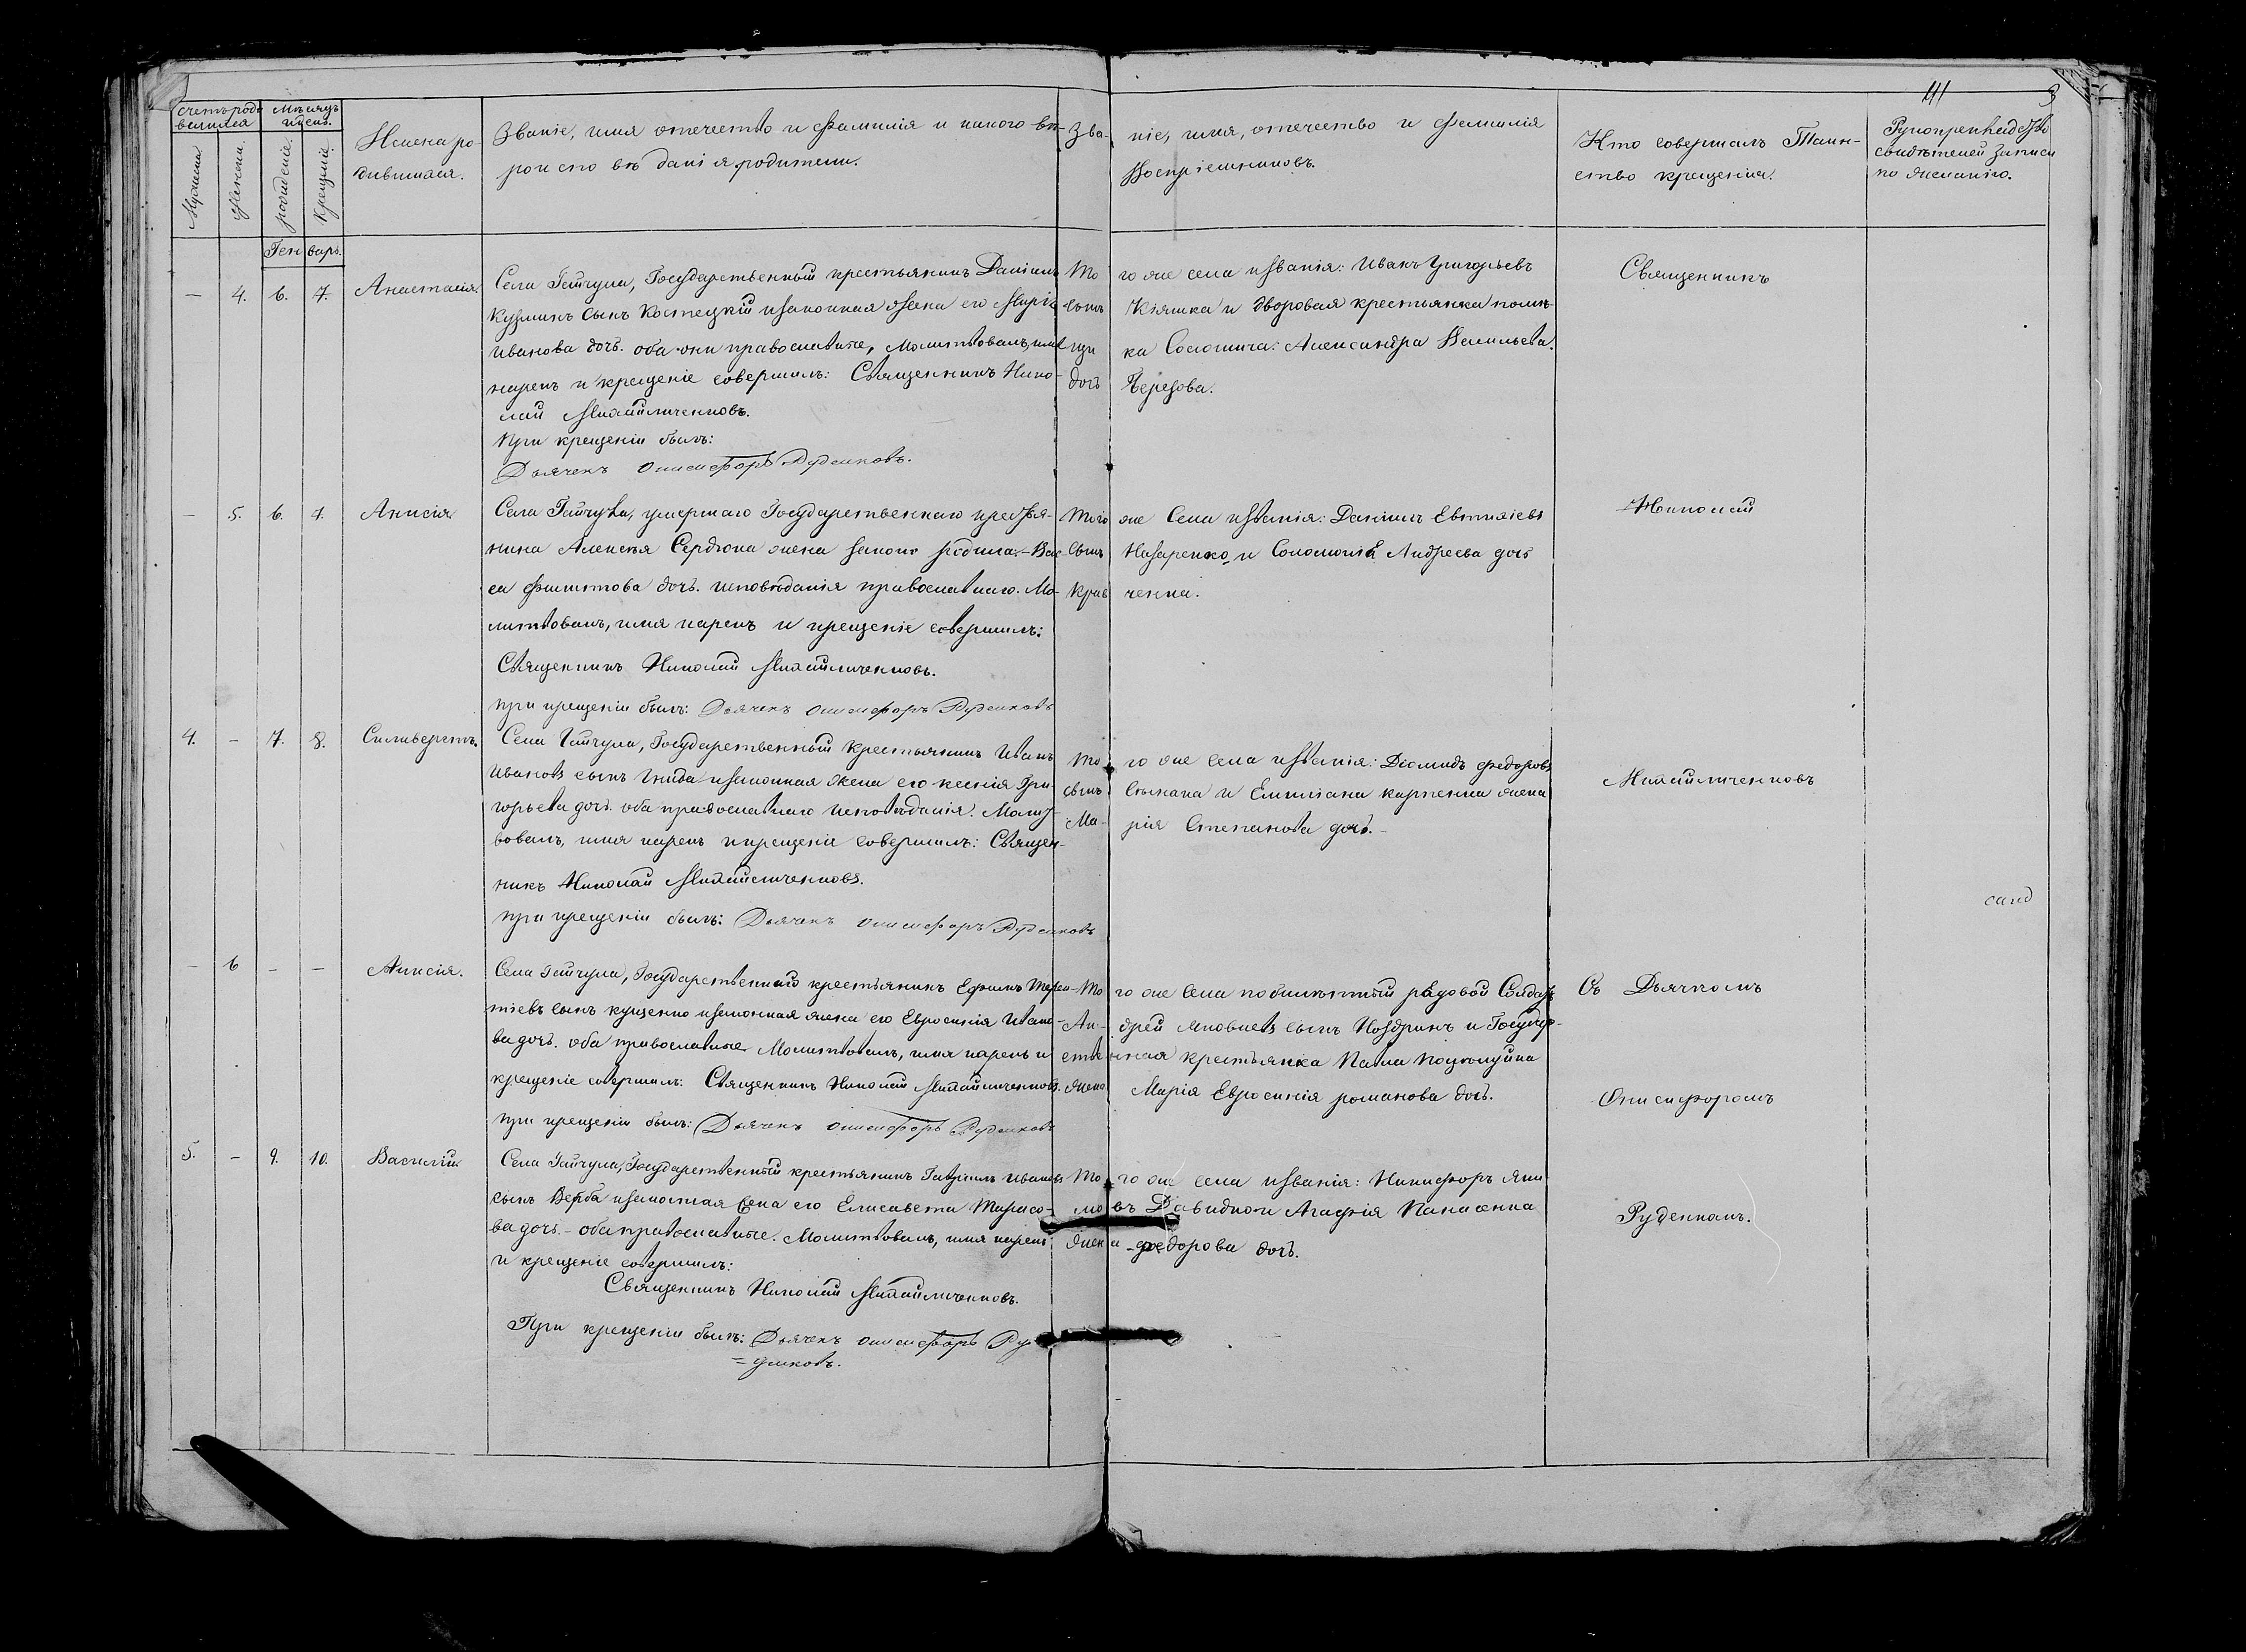 111
3
Счетъ роди
вшихся
Мѣсяцъ
и день.
Мужеска
Женска.
рожденіе.
Крещеніе.
Имена ро-
дившихся.
Званіе, имя отечество и фамилія и какого вѣ-
роисповѣданія родители.
Званіе, имя, отечество и фамилія
Воспріемниковъ.
Кто совершалъ Таин-
ство крещенія.
Рукоприкладство
свидѣтелей записи
по желанію.
Генварь.
— 4. 6. 7. Анастасія.
Села Гайчула, Государственный крестьянинъ Даніилъ
Кузминъ сынъ Костецкій и законная жена его Марія
Иванова дочь. оба они православные, Молитвовалъ, имя
нарекъ и крещеніе совершилъ: Священникъ Нико-
лай Михайличенковъ.
При крещеніи былъ:
Дьячекъ Онисифоръ Руденковъ.
Того же села и званія: Иванъ Григорьевъ
сынъ Кіяшка и дворовая крестьянка помѣ-
щика Солошича: Александра Васильева
дочь Березова.
Священникъ
— 5. 6. 7. Анисія
Села Гайчула, умершаго Государственнаго крестья-
нина Алексѣя Сердюка жена законо родила:
са Филиппова дочь. исповѣданія православнаго. Мо-
литвовалъ, имя нарекъ и крещеніе совершилъ:
Священникъ Николай Михайличенковъ.
при крещеніи былъ: Дьячекъ Онисифоръ Руденковъ
Того же Села и званія: Даніилъ Евтихіевъ
сынъ Назаренко и Соломонія Андреева дочь
Кравченка.
Николай
4. — 7. 8. Сильверстъ.
Села Гайчула, Государственный Крестьянинъ Иванъ
Ивановъ сынъ Гнида и законная жена его Ксенія Гри-
горьева дочь. оба православнаго исповѣданія. Молит-
вовалъ, имя нарекъ и крещеніе совершилъ: Священ-
никъ Николай Михайличенковъ.
при крещеніи былъ: Дьячекъ Онисифоръ Руденковъ
Того же села и званія: Діомидъ Федоровъ
сынъ и Емиліана Карпенка жена
Марія Степанова дочь.—
Михайличенковъ
— 6 — — Анисія.
Села Гайчула, Государственнаго крестьянинъ Ефимъ Терен-
тіевъ сынъ Куценко и законная жена его Евросинія Ивано-
ва дочь. оба православные Молитвовалъ, имя нарекъ и
крещеніе совершилъ: Священникъ Николай Михайличенковъ.
при крещеніи былъ: Дьячекъ Онисифоръ Руденковъ
Того же Села побилѣтный рядовой Солдатъ
Андрей Яковлевъ сынъ Ноздринъ и Государ-
ственная крестьянка Павла
жена Марія Евросинія романова дочь.
Съ Дьячкомъ
Онисифоромъ
5. — 9. 10. Василій
Села Гайчула, Государственный крестьянинъ Гавріилъ Ивановъ
сынъ Верба и законная жена его Елисавета Тарасо-
ва дочь — оба православные. Молитвовалъ, имя нарекъ
и крещеніе совершилъ:
Священникъ Николай Михайличенковъ.
При крещеніи былъ: Дьячекъ Онисифоръ Ру-
=денковъ.
Того же села и званія: Никифоръ Яки-
мовъ Давидко и Агафія Панасенка
жена Федорова дочь.
Руденкомъ.